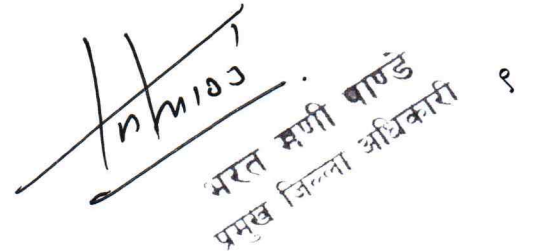 भरत मणी पाण्डे
प्रमुख जिल्ला अधिकारी
९